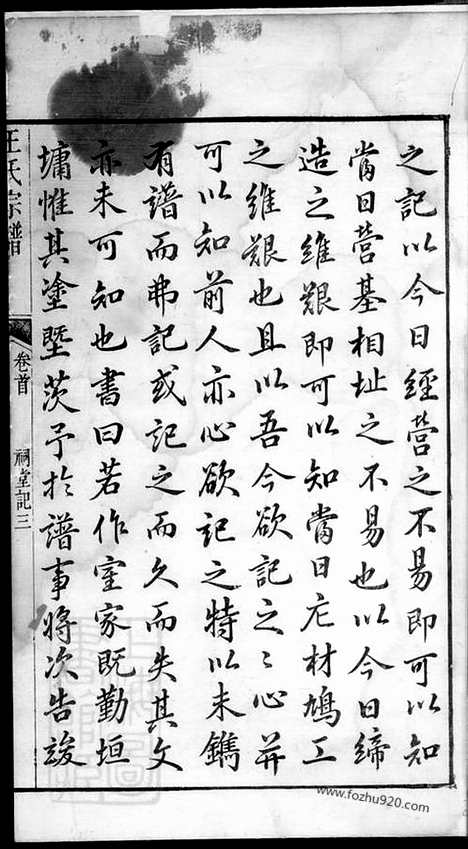 之記以今日經營之不易即可以知
當日營基相址之不易也以今日締
造之維艱即可以知當日庀材鳩工
之維艱也且以吾今欲記之之心并
可以知前人亦心欲記之特以未鐫
有譜而弗記或記之而久而失其文
亦未可知也書曰若作室家既勤垣
墉惟其塗塈茨予於譜事將次告竣
王氏宗譜
卷首
祠堂記三
www.fozhu920.com